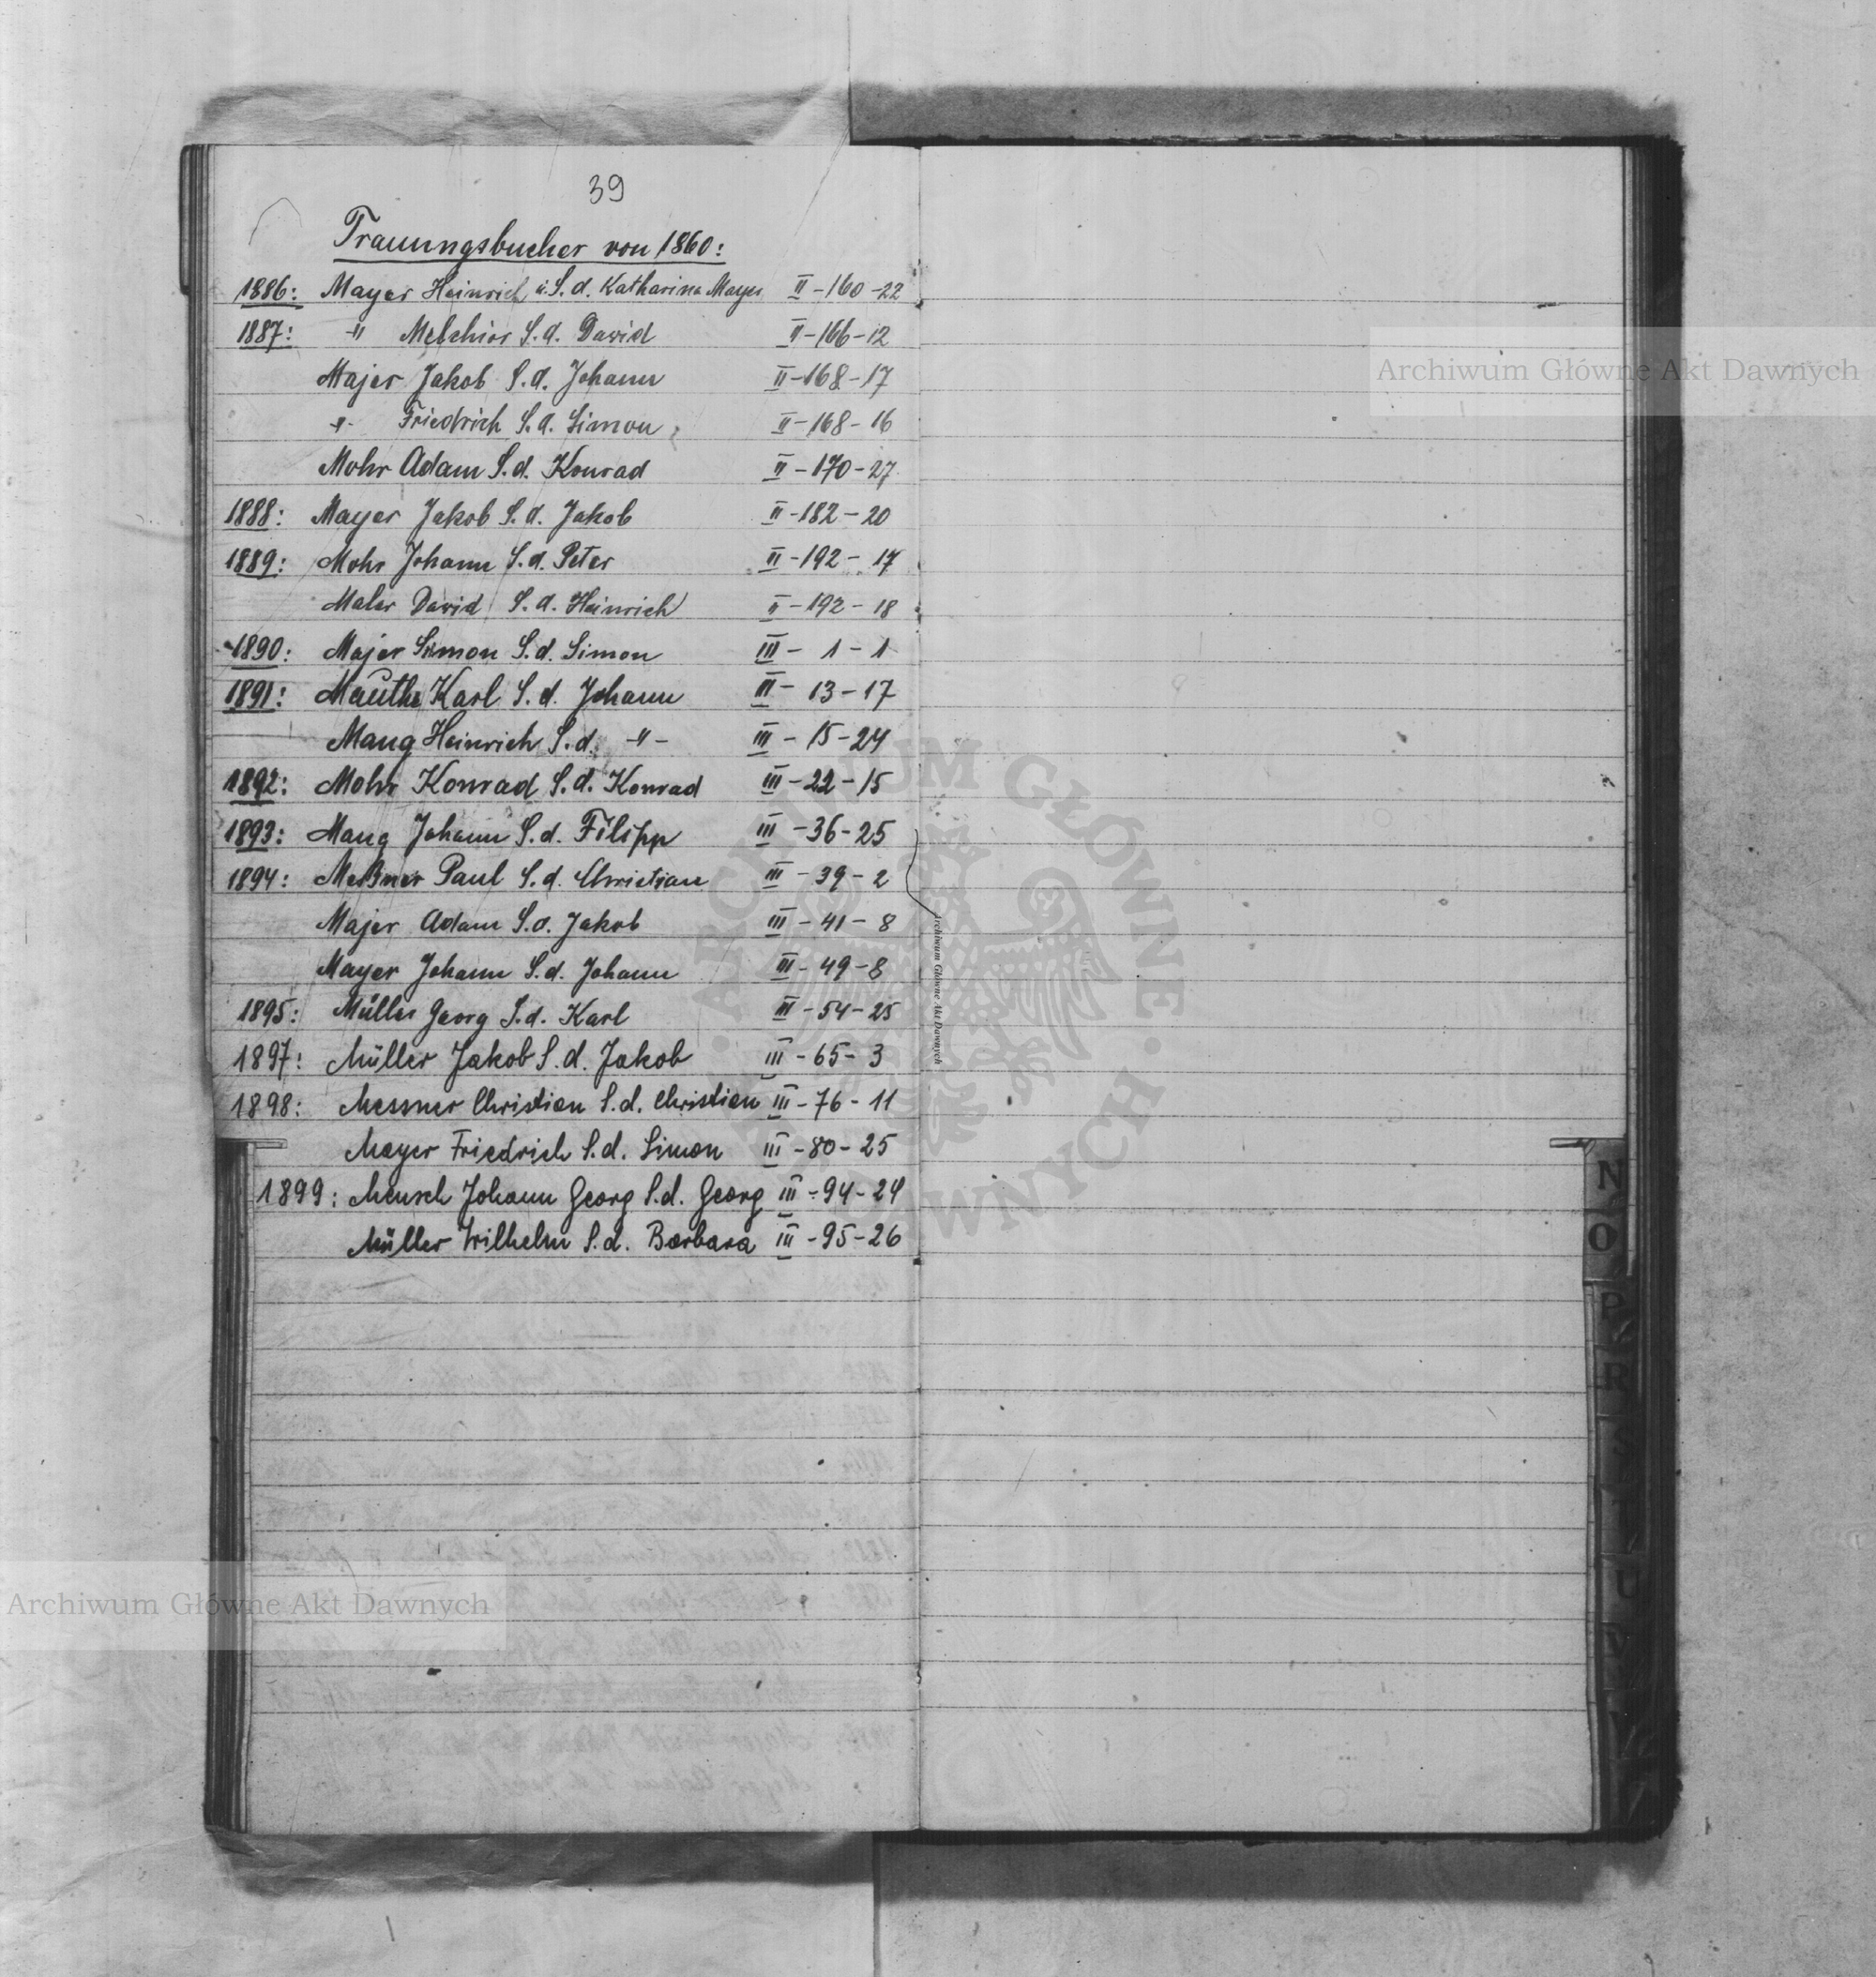 39
Trauungsbucher von 1860:
1886: Mayer Heinrich u. S. d. Katharina Mayer II-160-22
1887: -"- Melchior S. d. Dawid II-166-12
Majer Jakob S. d. Johann II-168-17
-"- Friedrich S. d. Simon II-168-16
Mohr Adam S. d. Konrad II-170-27
1888: Mayer Jakob S. d. Jakob II-182-20
1889: Mohr Johann S. d. Peter II-192-17
Maler Dawid S. d. Heinrich II-192-18
1890: Majer Simon S. d. Simon III-1-1
1891: Mauthe Karl S. d. Johann III-13-17
Mang Heinrich S. d. -"- III-15-24
1892: Mohr Konrad S. d. Konrad III-22-15
1893: Mang Johann S. d. Filipp III-36-25
1894: Meßner Paul S. d. Christian III-39-2
Majer Adam S. d. Jakob III-41-8
Mayer Johann S. d. Johann III-49-8
1895: Müller Georg S. d. Karl III-54-25
1897: Müller Jakob S. d. Jakob III-65-3
1898: Messner Christian S. d. Christian III-76-11
Mayer Friedrich S. d. Simon III-80-25
1899: Mensch Johann Georg S. d. Georg III-94-24
Müller Wilhelm S. d. Barbara III-95-26
Archiwum Główne Akt Dawnych
Archiwum Główne Akt Dawnych
Archiwum Główne Akt Dawnych
ARCHIWUM GŁÓWNE
DAWNYCH
N
O
P
R
S
T
U